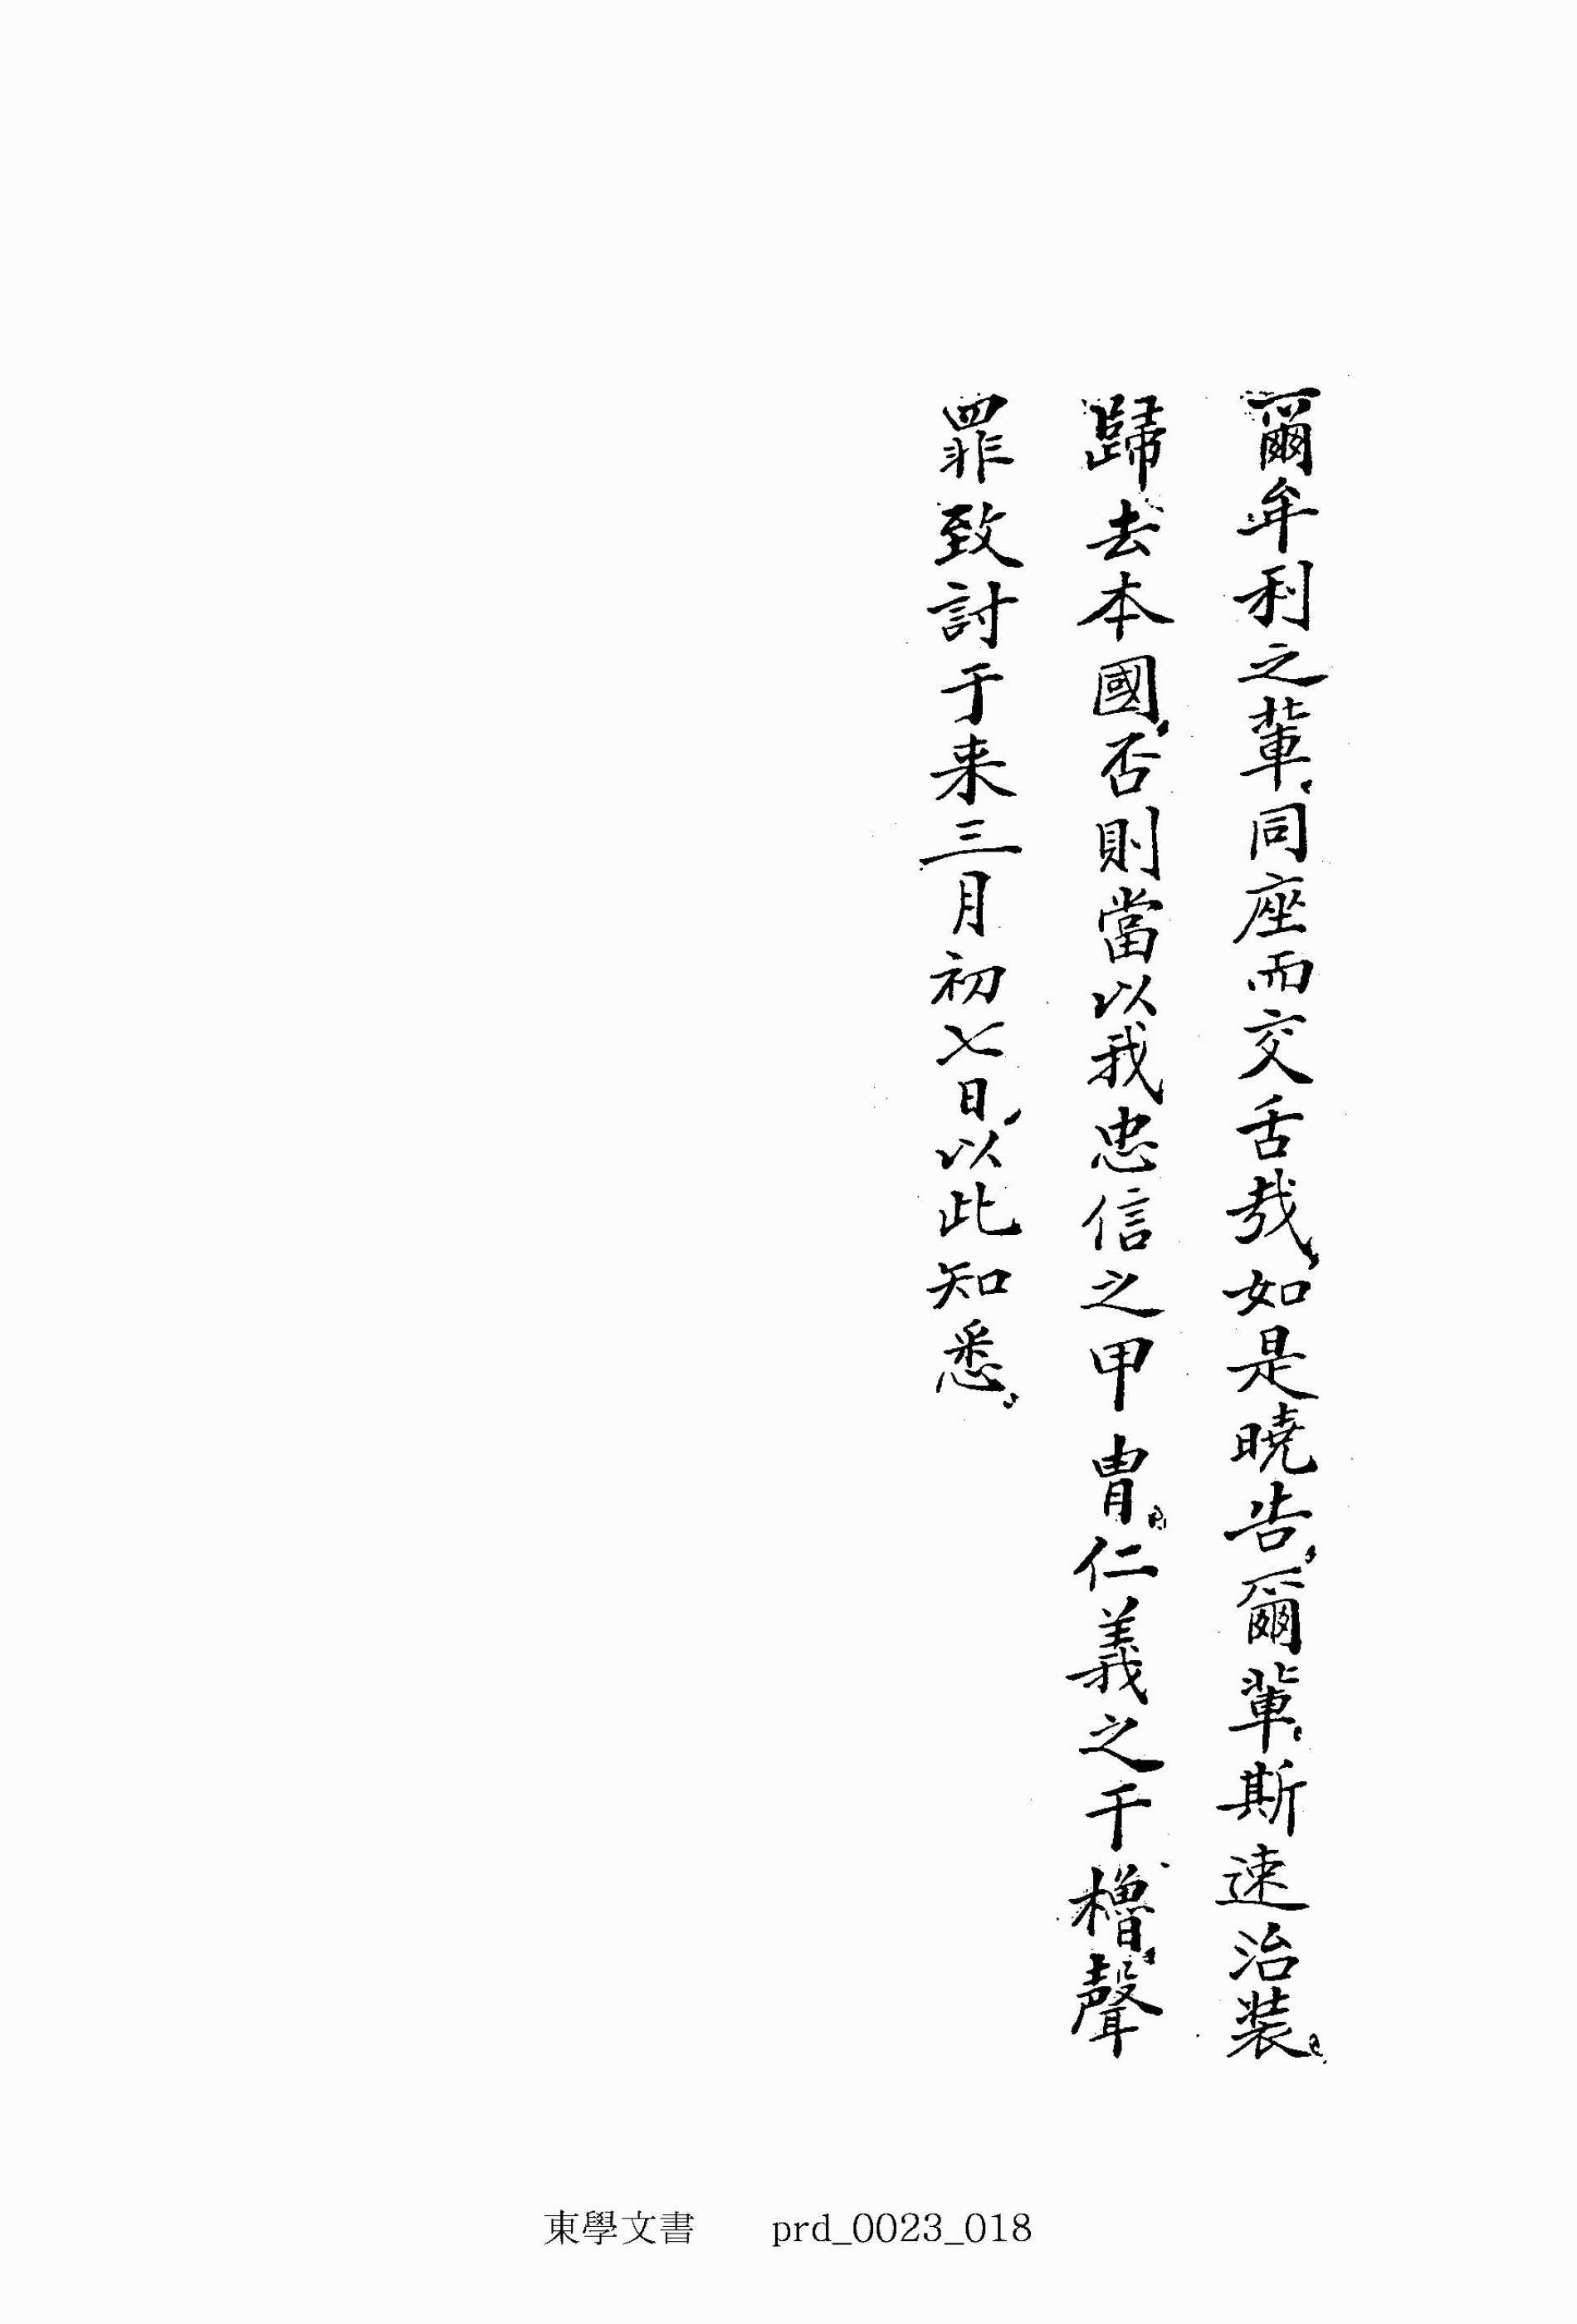 爾牟利之輩、同座而交舌哉、如是曉告、爾輩、斯速治装、
歸去本國、否則當以我忠信之甲冑、仁義之干櫓、聲
罪致討于来三月初七日、以此知悉、
東學文書 prd_0023_018